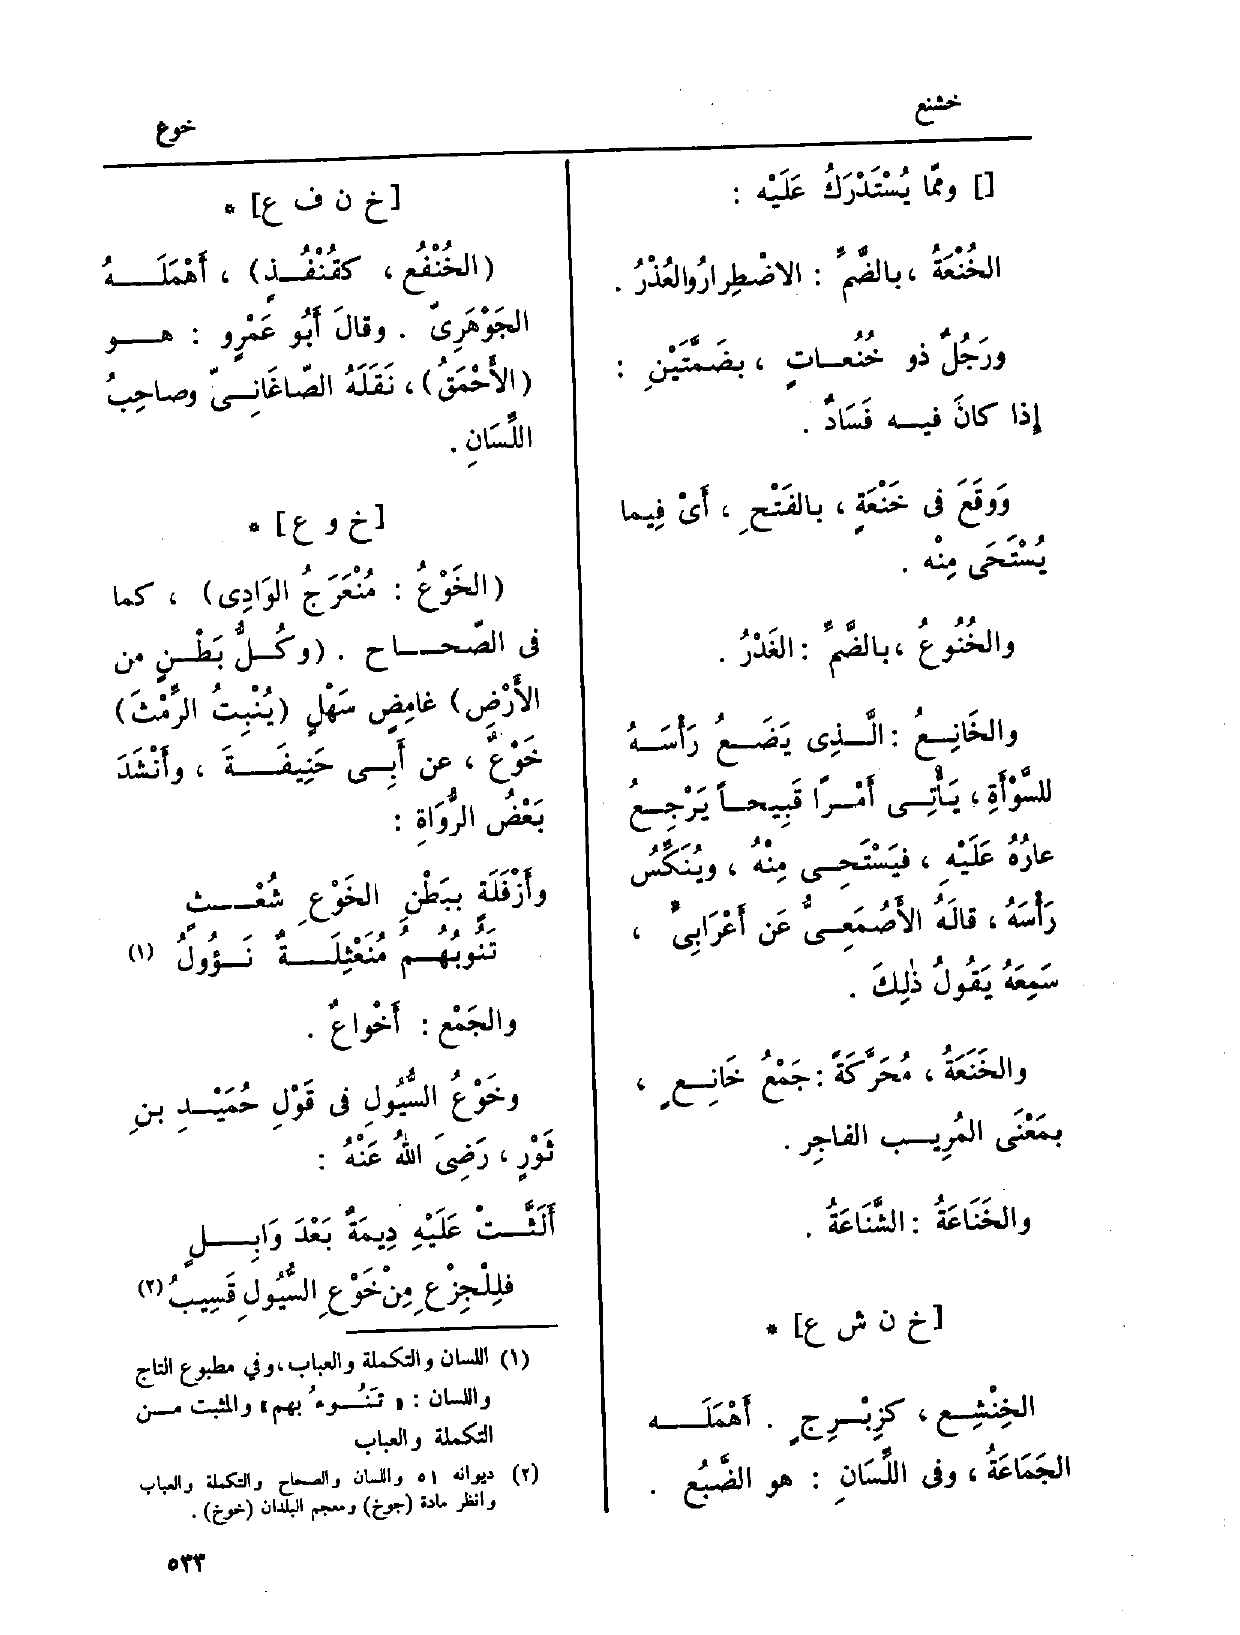 خشنع
خوع
[] ومّا يُسْتَدْرَكُ عَلَيْه :
الخُنْعَةُ ، بالضَّمِّ : الاضْطِرارُ والعُذْرُ .
ورَجُلٌ ذو خُنُعــاتٍ ، بضَمَّتَيْنِ :
إذا كانَ فيــه فَسَادٌ .
وَوَقَعَ فى خَنْعَةٍ ، بالفَتْحِ ، أَىْ فِيما
يُسْتَحَى مِنْه .
والخُنُوعُ ، بالضَّمِّ : الغَدْرُ .
والخَانِــعُ : الَّــذِى يَضَــعُ رَأْسَــهُ
للسَّوْأَةِ ، يَأْتِــى أَمْــرًا قَبِيحــاً يَرْجِــعُ
عارُهُ عَلَيْهِ ، فيَسْتَحِــى مِنْهُ ، ويُنَكِّسُ
رَأْسَهُ ، قالَهُ الأَصْمَعِــىُّ عَن أَعْرَابِىٍّ ،
سَمِعَهُ يَقُولُ ذٰلِكَ .
والخَنَعَةُ ، مُحَرَّكَةً : جَمْعُ خَانِــعٍ ،
بمَعْنَى المُرِيــبِ الفاجِرِ .
والخَنَاعَةُ : الشَّنَاعَةُ .
[خ ن ش ع] *
الخِنْشِــع ، كزِبْــرِجٍ . أَهْمَلَــه
الجَمَاعَةُ ، وفى اللِّسَانِ : هو الضَّبُعُ .
[خ ن ف ع] *
(الخُنْفُع ، كقُنْفُــذٍ) ، أَهْمَلَــــهُ
الجَوْهَرِىّ . وقالَ أَبُو عَمْرٍو : هــــو
(الأَحْمَقُ) ، نَقَلَهُ الصّاغَانِــىّ وصاحِبُ
اللِّسَانِ .
[خ و ع] *
(الخَوْعُ : مُنْعَرَجُ الوَادِى) ، كما
فى الصّحــــاح . (وكُــلُّ بَطْــنٍ من
الأَرْضِ) غامِضٍ سَهْلٍ (يُنْبِتُ الرِّمْثَ)
خَوْعٌ ، عن أَبِــى حَنِيفَــــةَ ، وأَنْشَدَ
بَعْضُ الرُّوَاةِ :
وأَزْفَلَةٍ ببَطْنِ الخَوْعِ شُعْــــثٍ
تَنُوبُهُــمُ مُنَعْثِلَــــةٌ نَــؤُولُ (١)
والجَمْع : أَخْواعٌ .
وخَوْعُ السُّيُولِ فى قَوْلِ حُمَيْــدِ بنِ
ثَوْرٍ ، رَضِىَ اللهُ عَنْهُ :
أَلَثَّــتْ عَلَيْهِ دِيمَةٌ بَعْدَ وَابِــــلٍ
فلِلْجِزْعِ مِنْ خَوْعِ السُّيُولِ قَسِيبُ (٢)
(١) اللسان والتكملة والعباب ، وفي مطبوع التاج
واللسان : « تَنُــوءُ بهم » والمثبت مــن
التكملة والعباب
(٢) ديوانه ٥١ واللسان والصحاح والتكملة والعباب
وانظر مادة (جوخ) ومعجم البلدان (خوخ) .
٥٣٣